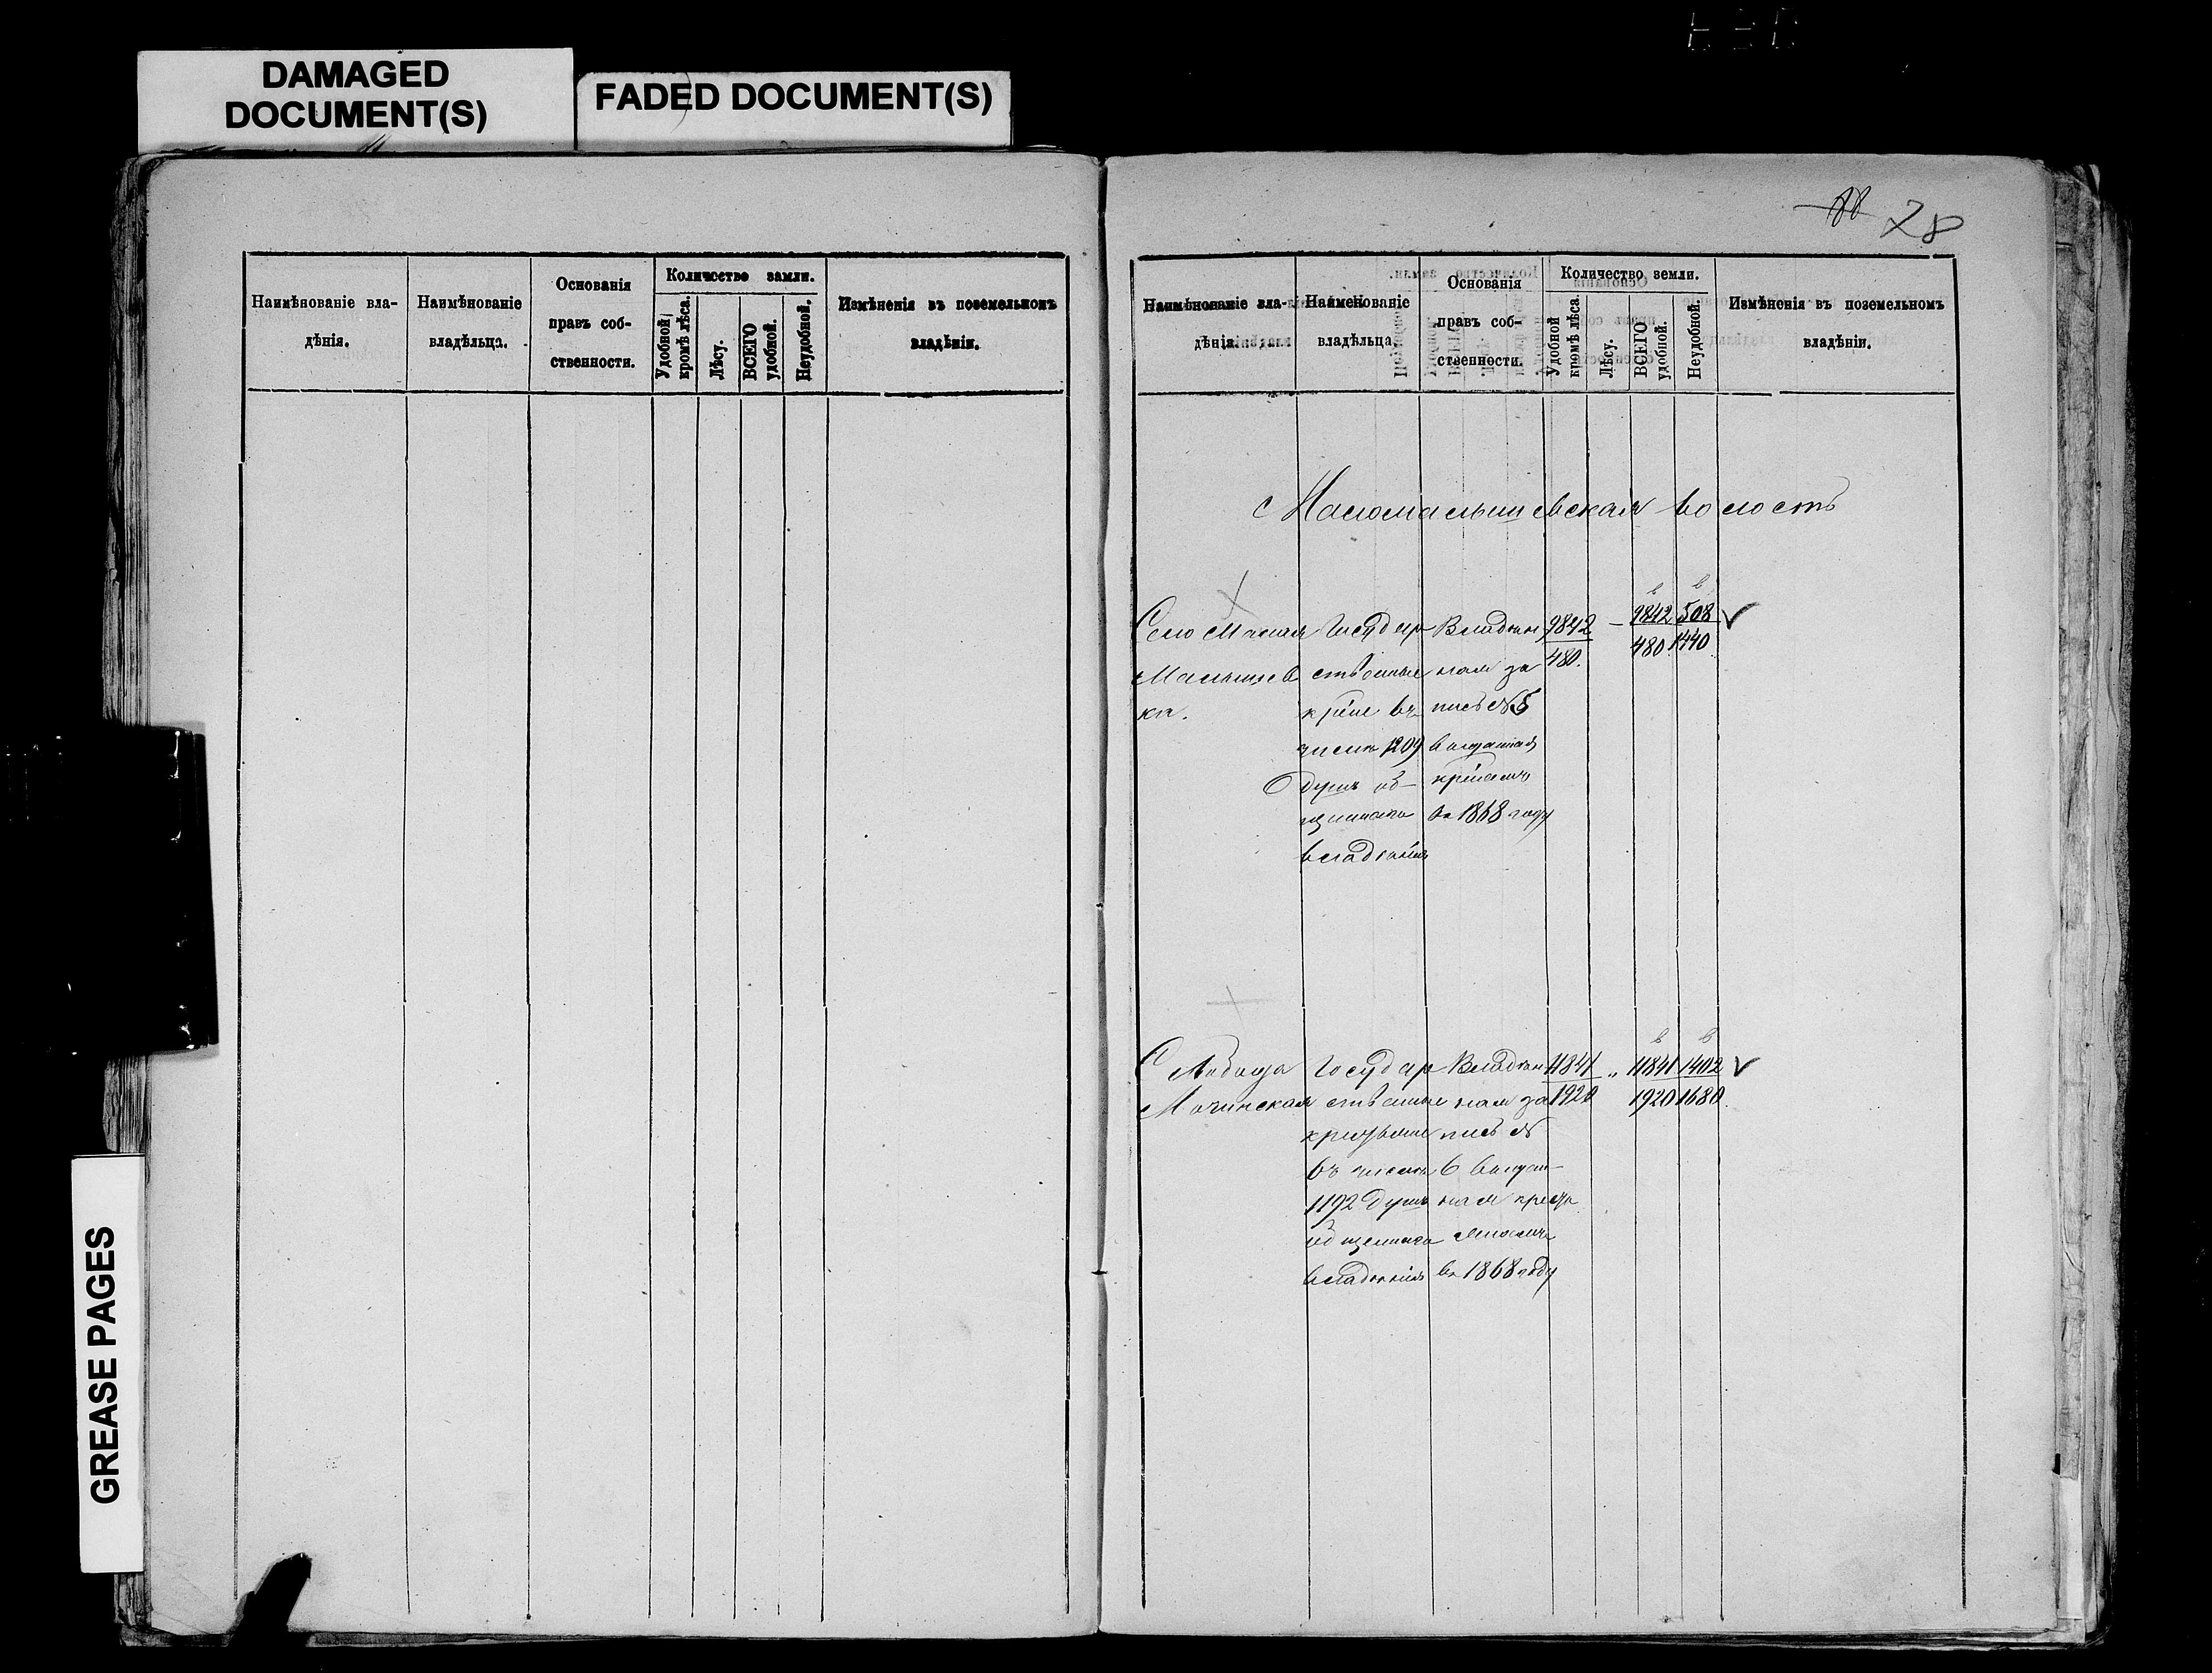 DAMAGED
DOCUMENT(S)
FADED DOCUMENT(S)
GREASE PAGES
Наимѣнованіе вла-
дѣнія.
Наимѣнованіе
владѣльца.
Основанія
правъ соб-
ственности.
Количество земли.
Удобной
кромѣ лѣса.
Лѣсу.
ВСЕГО
удобной.
Неудобной.
Измѣненія въ поземельномъ
владѣніи.
28
Наимѣнованіе вла-
дѣнія.
Наименованіе
владѣльца.
Основанія
правъ соб-
ственности.
Количество земли.
Удобной
кромѣ лѣса.
Лѣсу.
ВСЕГО
удобной.
Неудобной.
Измѣненія въ поземельномъ
владѣніи.
Маломалышевская волость
Село Малая
Малышев
ка.
Государ
ственные
кр҃не въ
числѣ 1209
душъ об-
щиннаго
владѣнія
Владѣн
ная за
пись №5
выданная
въ 1868 году
9842
480.
—
9842
480
508
1440
Слобода
Мочинская
Государ
ственные
крестьяне
въ числѣ
1192 душъ
общиннаго
владѣнія
Владѣн
ная за
пись №
6 выдан-
ная кресть
янамъ
въ 1868 году
11841
1920
"
11841
1920
1402
1680